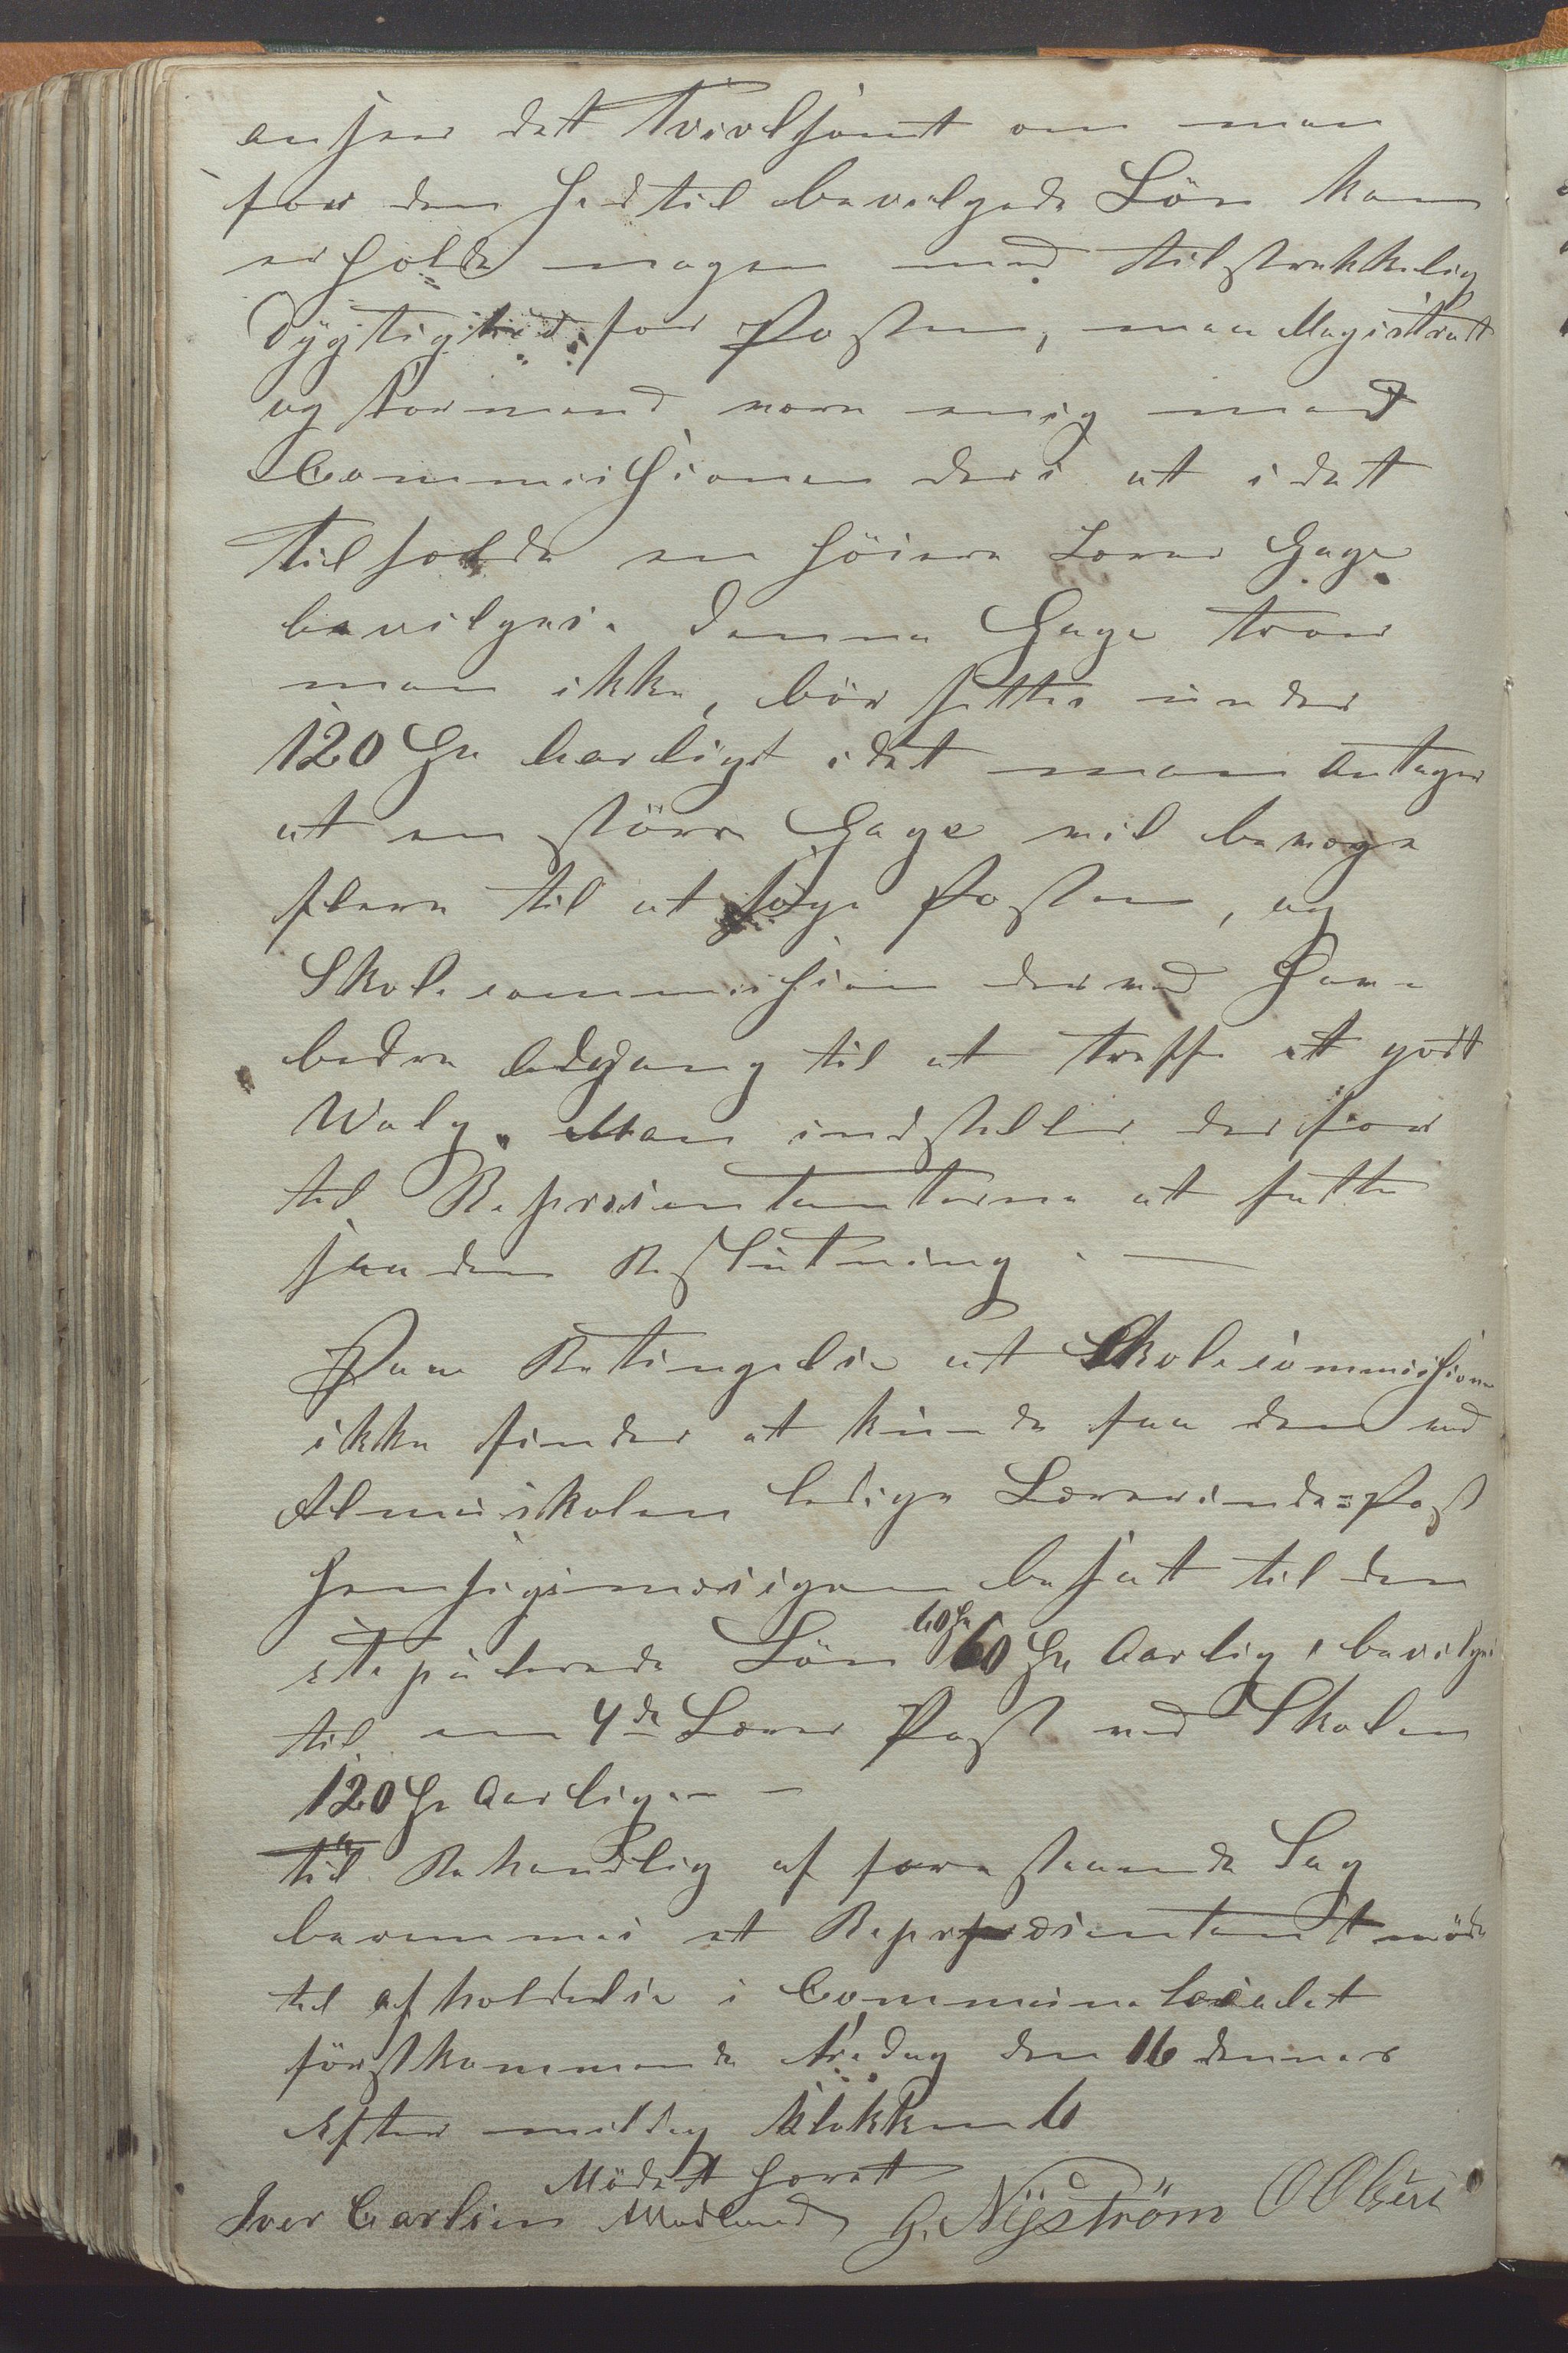 anseer det Tvivlsomt om man
for den hertil bevilgede Lön kan
erholde nogen med tilstrekkelig
Dygtighed for Posten, man Magistratt
og Formend vare enig med
Commissionen deri at i det
tilfelde en höiere Lærer Gage
bevilges. Denne Gage troer
man ikke, bör settes under
120 Sp aarligt idet man antager
at en störe Gage vil bevæge
flere til at söge Posten, og
Skolecommission derved have
bedre Adgang til at treffe et godt
Walg. Man indstiller derfor
til Repræsentanterne at fatte
saaden Beslutning. —
Paa Betingelse at Skolecommissionen
ikke finder at kunde faa den ved
Almuskolen ledige Lærerinde=Post
hensigsmæsigen besat til den
stepulerede Lön 60 Sp Aarlig, bevilges
til en 4de Lærer Post ved Skolen
120 Sp Aarlig. —
til Behandlig af forestaaende Sag
berammes et Repræsentantmöde
til afholdelse i Communelocalet
förstkommende Fredag den 16 dennes
Efter middag Klokken 6
Mödet hævet
Iver Carlsen Madland G. Nyström